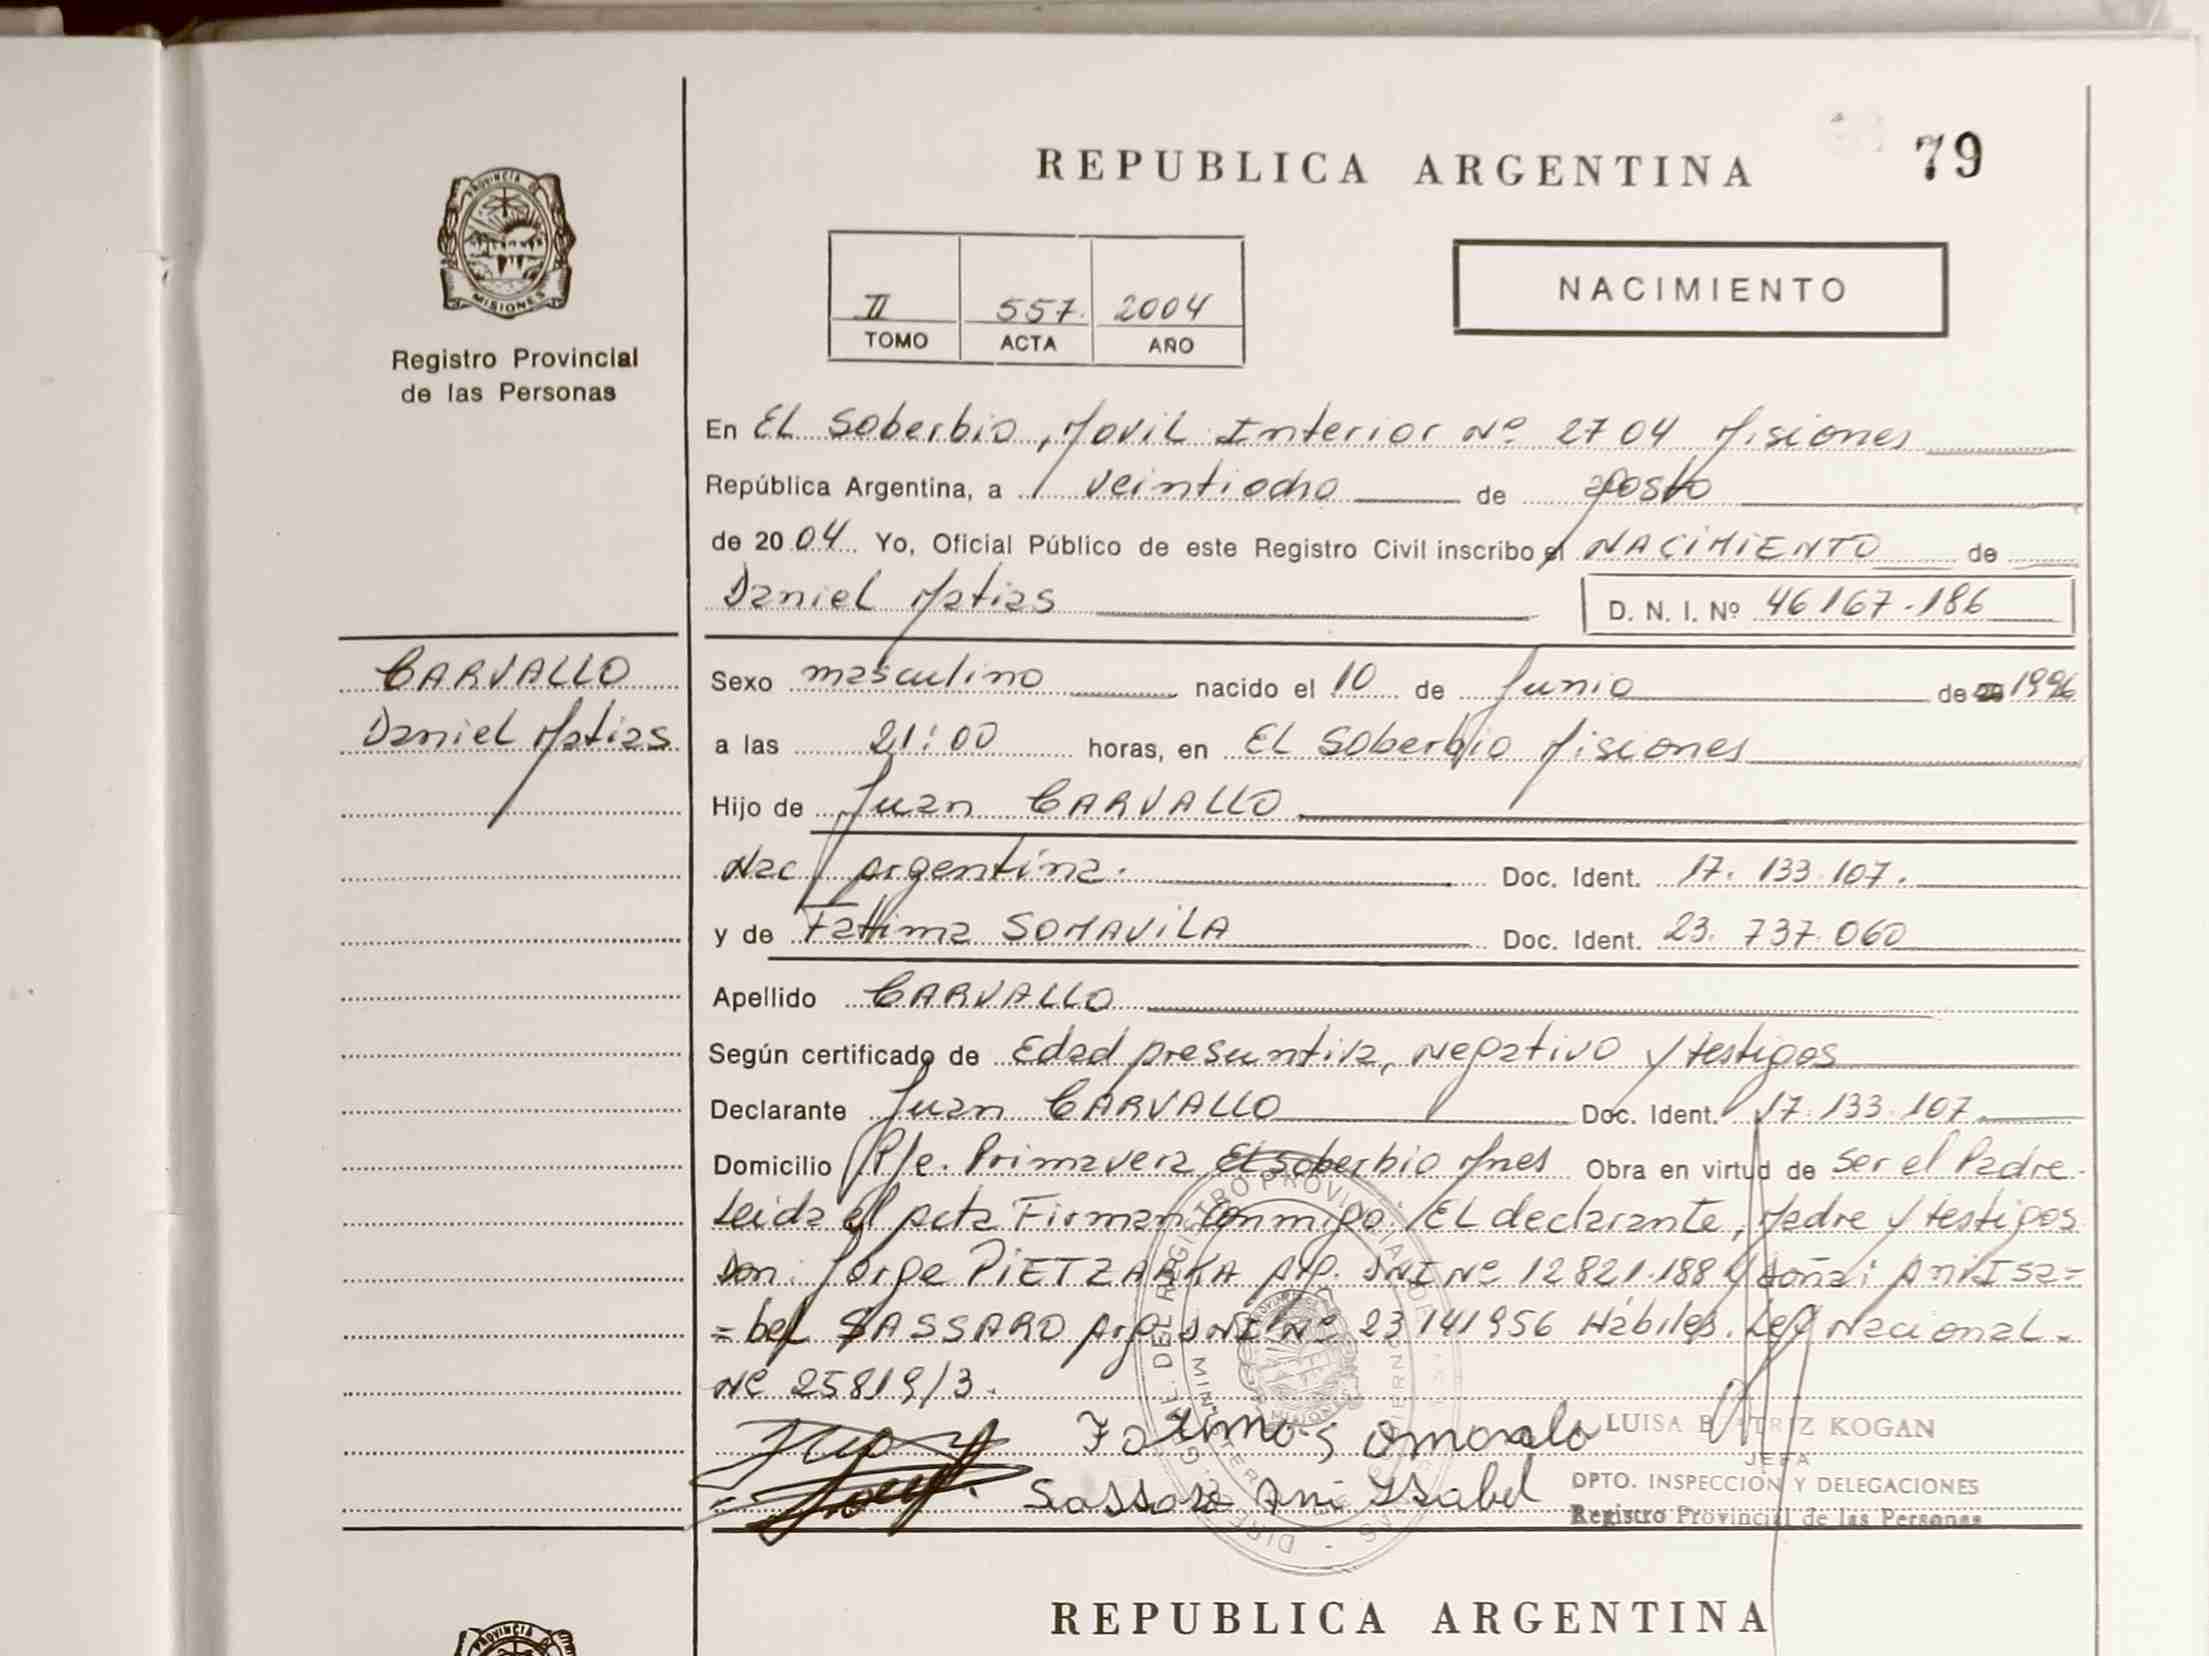 REPUBLICA ARGENTINA
79
PROVINCIA DE
MISIONES
Registro Provincial
de las Personas
II 557. 2004
TOMO ACTA AÑO
NACIMIENTO
En EL Soberbio, Movil Interior Nº 2704 Misiones
República Argentina, a veintiocho de agosto
de 2004 Yo, Oficial Público de este Registro Civil inscribo el NACIMIENTO de
Daniel Matias
D. N. I. Nº 46167.186
CARVALLO
Daniel Matias
Sexo masculino nacido el 10 de Junio de 1996
a las 21:00 horas, en EL Soberbio Misiones
Hijo de Juan CARVALLO
Nac argentina. Doc. Ident. 17. 133. 107.
y de Fattima SOMAVILA Doc. Ident. 23. 737. 060
Apellido CARVALLO
Según certificado de Edad presuntiva, Negativo y testigos
Declarante Juan CARVALLO Doc. Ident. 17. 133. 107.
Domicilio Pje. Primavera El Soberbio Mnes Obra en virtud de Ser el Padre.
Leida el acta Firman Conmigo. EL declarante, Madre y testigos
Don: Jorge PIETZARKA Arg. DNI Nº 12821.188 y doña: Ani Isa=
=bel SASSARO Arg. DNI Nº 23141956 Hábiles. Ley Nacional.
Nº 25819/3.
Sassaro Ani Ysabel
LUISA BEATRIZ KOGAN
JEFA
DPTO. INSPECCION Y DELEGACIONES
Registro Provincial de las Personas
REPUBLICA ARGENTINA
PROVINCIA